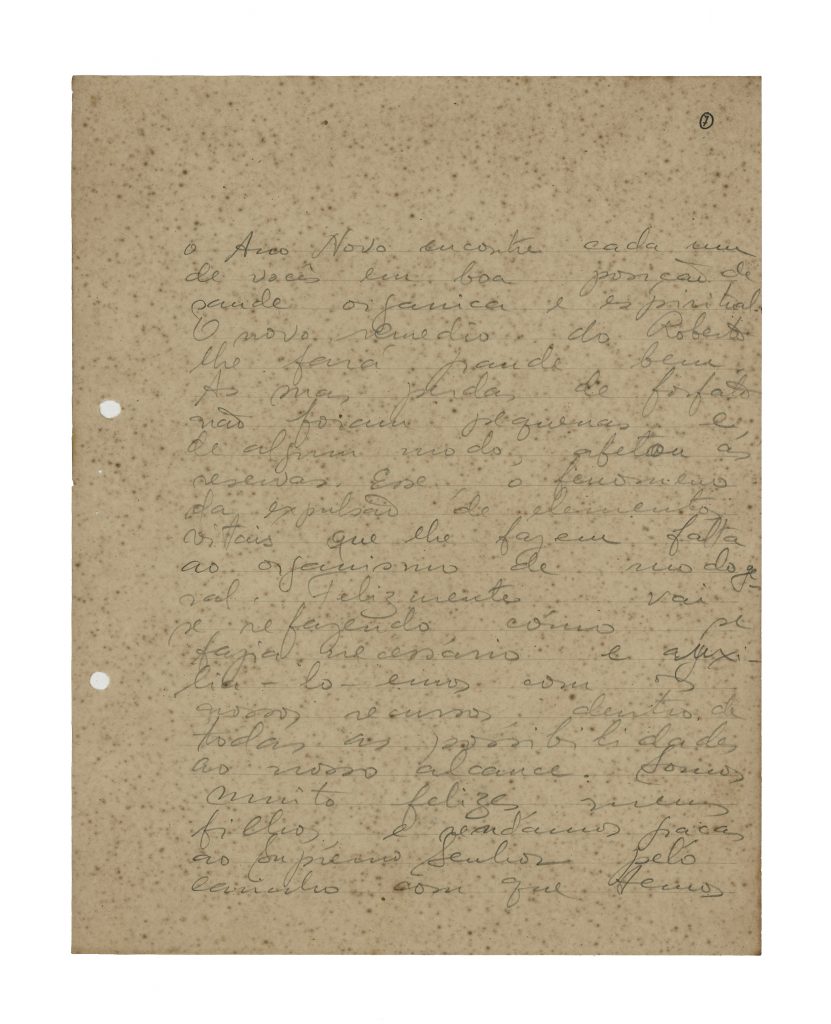 7
o Ano Novo encontre cada um
de vocês em boa posição de
saude organica e espiritual.
O novo remedio do Roberto
lhe fará grande bem.
As suas perdas de fosfato
não foram pequenas e,
de algum modo, afetou ás
reservas. Esse o fenomeno
da expulsão de elementos
vitais que lhe fazem falta
ao organismo de modo ge-
ral. Felizmente, vai
se refazendo como se
fazia necessário e auxi-
lia-lo-emos com os
nossos recursos dentro de
todas as possibilidades
ao nosso alcance. Somos
muito felizes, meus
filhos, e rendamos graças
ao Supremo Senhor pelo
carinho com que temos